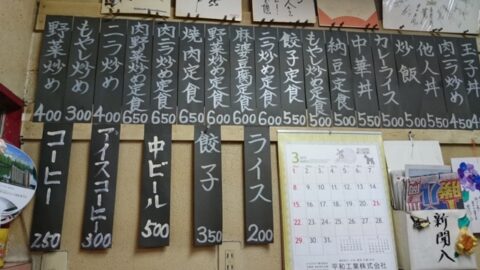 玉子丼 450
肉ニラ炒め 450
他人丼 500
炒飯 500
カレーライス 500
中華丼 550
納豆定食 500
もやし炒め定食 550
餃子定食 550
ニラ炒め定食 650
麻婆豆腐定食 600
野菜炒め定食 600
焼肉定食 650
肉野菜炒め定食 650
ニラ炒め 400
もやし炒め 300
野菜炒め 400
ライス 200
餃子 350
中ビール 500
アイスコーヒー 300
コーヒー 250
3
1 2 3 4 5 6 7
8 9 10 11 12 13 14
15 16 17 18 19 20 21
22 23 24 25 26 27 28
29 30 31
平和工業株式会社
新聞入